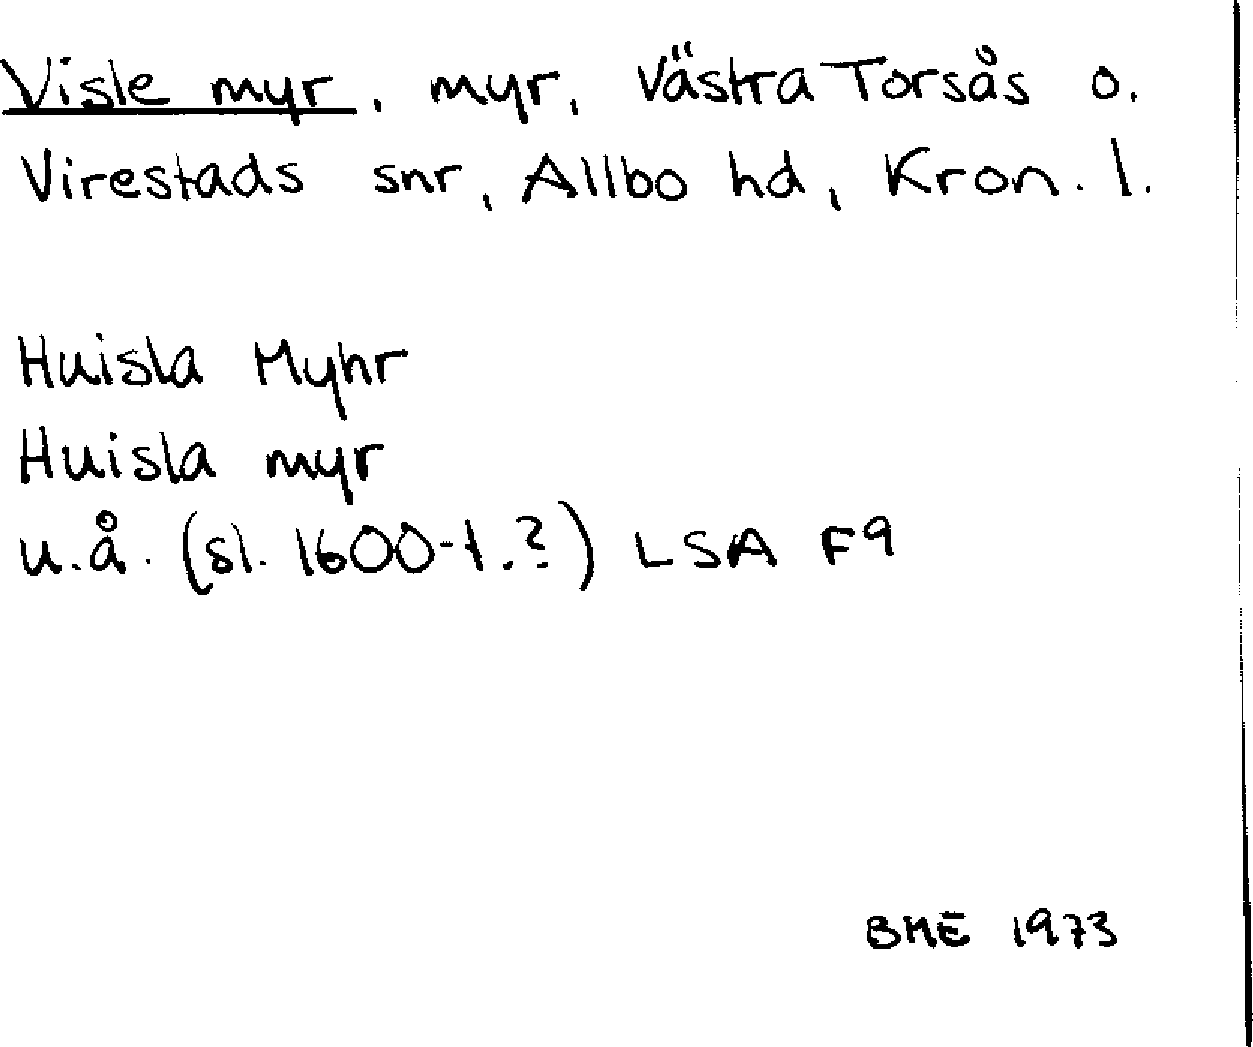 Visle myr, myr, Västra Torsås o.
Virestads snr, Allbo hd, Kron. l.
Huisla Myhr
Huisla myr
u.å. (sl. 1600-t.?) LSA F9
BME 1973